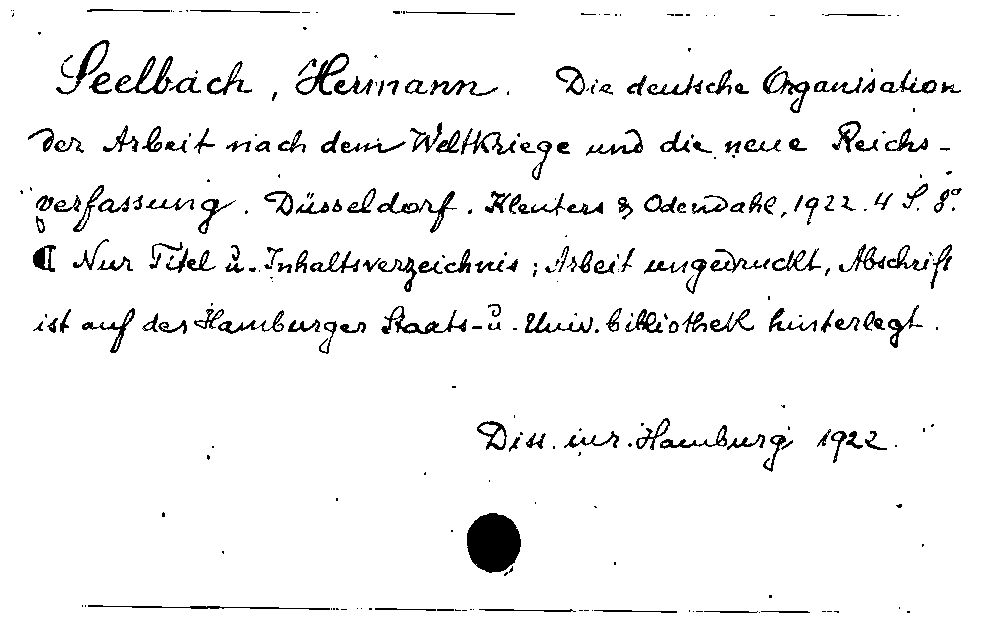 Seelbach, Hermann. Die deutsche Organisation
der Arbeit nach dem Weltkriege und die neue Reichs-
verfassung. Düsseldorf. Kleuters & Odendahl, 1922. 4 S. 8°.
¶ Nur Titel u. Inhaltsverzeichnis; Arbeit ungedruckt, Abschrift
ist auf der Hamburger Staats- u. Univ. bibliothek hinterlegt.
Diss. iur. Hamburg 1922.